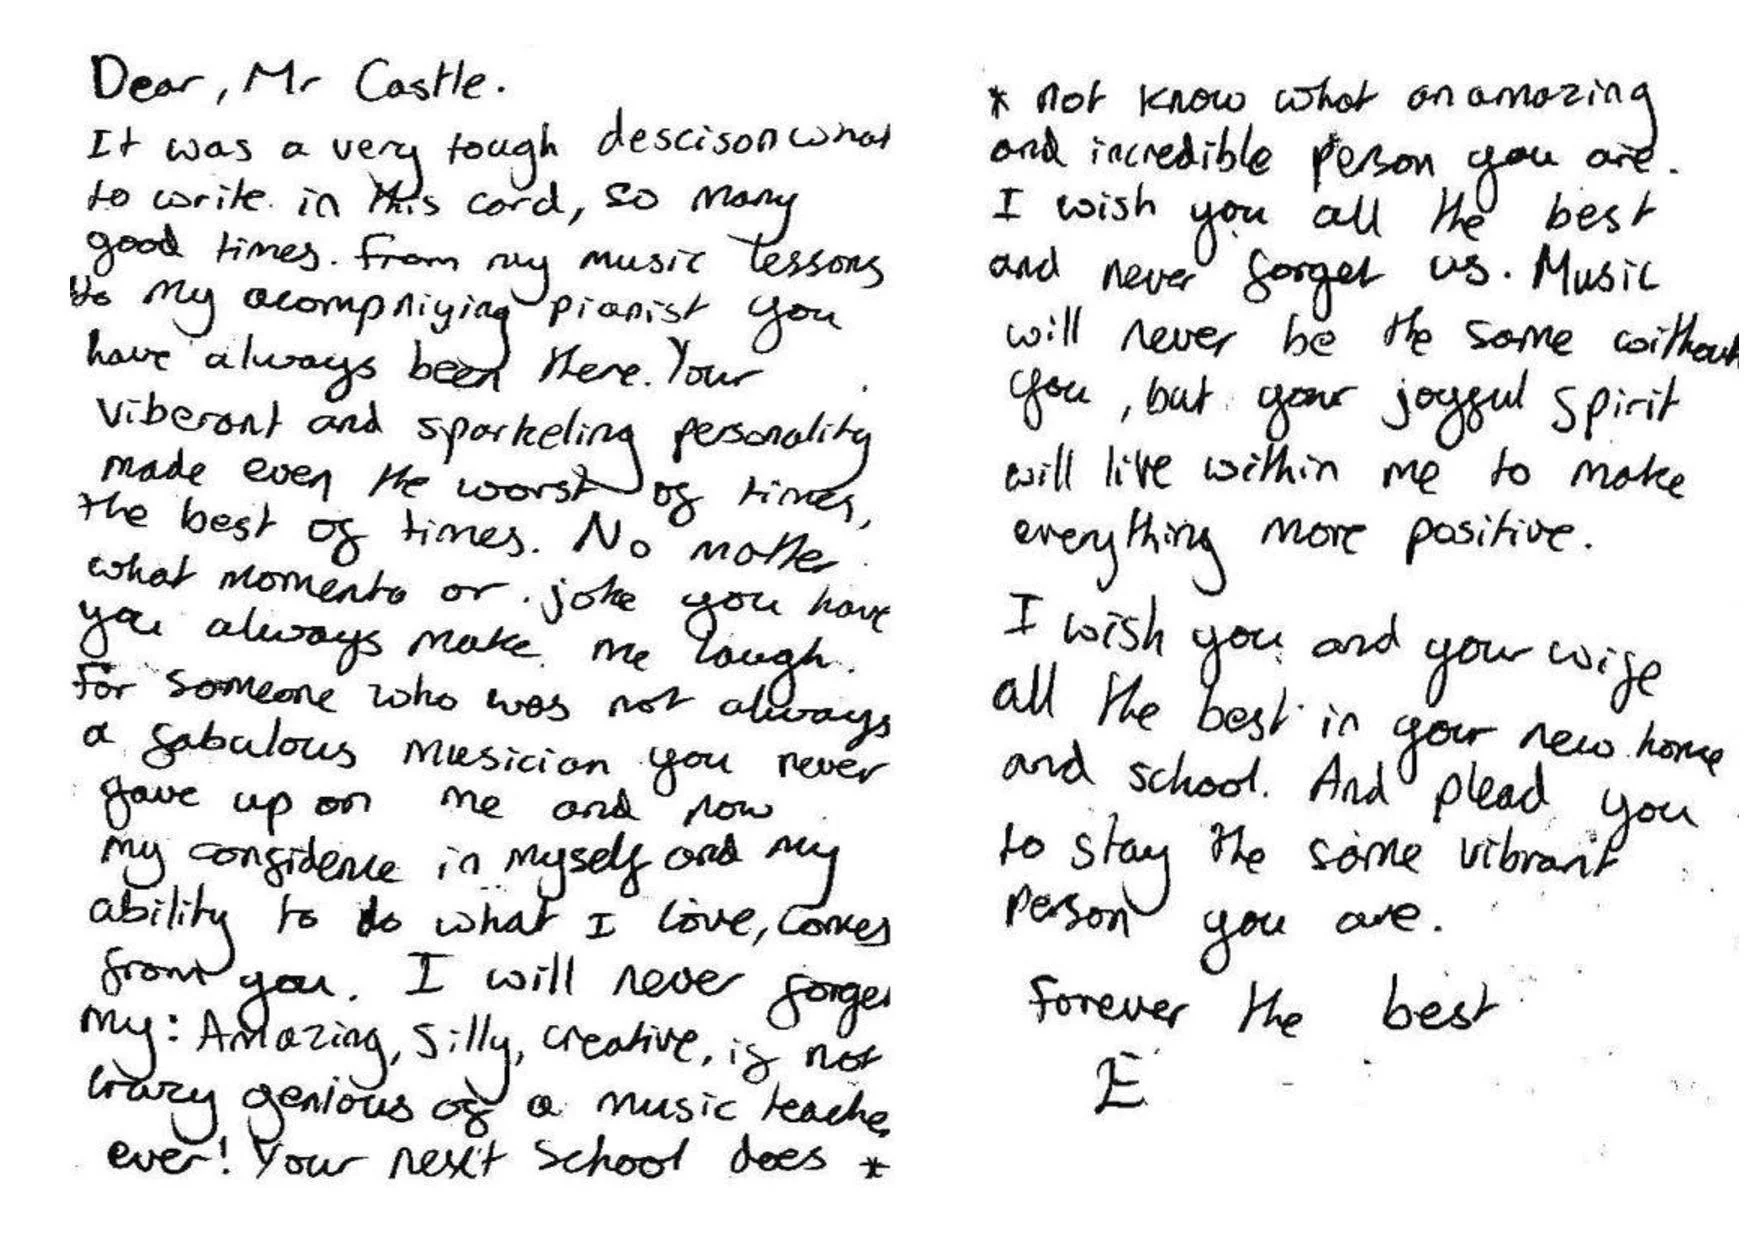 Dear, Mr Castle.
It was a very tough descison what
to write in this card, so many
good times. From my music lessons
to my acompniying pianist you
have always been there. Your
viberant and sparkeling personality
made even the worst of times,
the best of times. No matter
what momento or joke you have
you always make me laugh.
For someone who was not always
a fabulous musician you never
gave up on me and now
my confidence in myself and my
ability to do what I love, comes
from you. I will never forget
my: Amazing, silly, creative, if not
crazy genious of a music teacher
ever! Your next school does *
* not know what an amazing
and incredible person you are.
I wish you all the best
and never forget us. Music
will never be the same without
you, but your joyful spirit
will live within me to make
everything more positive.
I wish you and your wife
all the best in your new home
and school. And plead you
to stay the same vibrant
person you are.
Forever the best
E